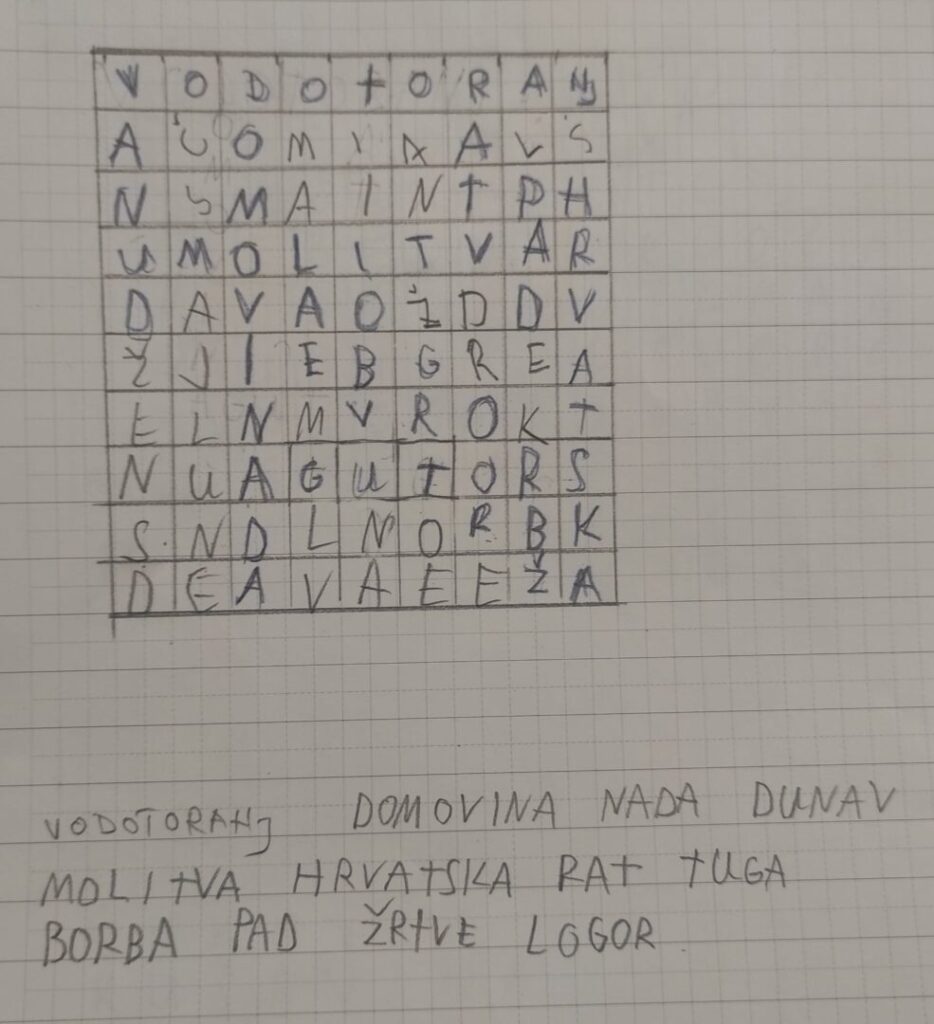 V O D O T O R A Nj
A U O M I A A L S
N S M A I N T P H
U M O L I T V A R
D A V A O Ž D D V
Ž J I E B G R E A
E L N M V R O K T
N U A G U T O R S
S N D L N O R B K
D E A V A E E Ž A
VODOTORANJ DOMOVINA NADA DUNAV
MOLITVA HRVATSKA RAT TUGA
BORBA PAD ŽRTVE LOGOR